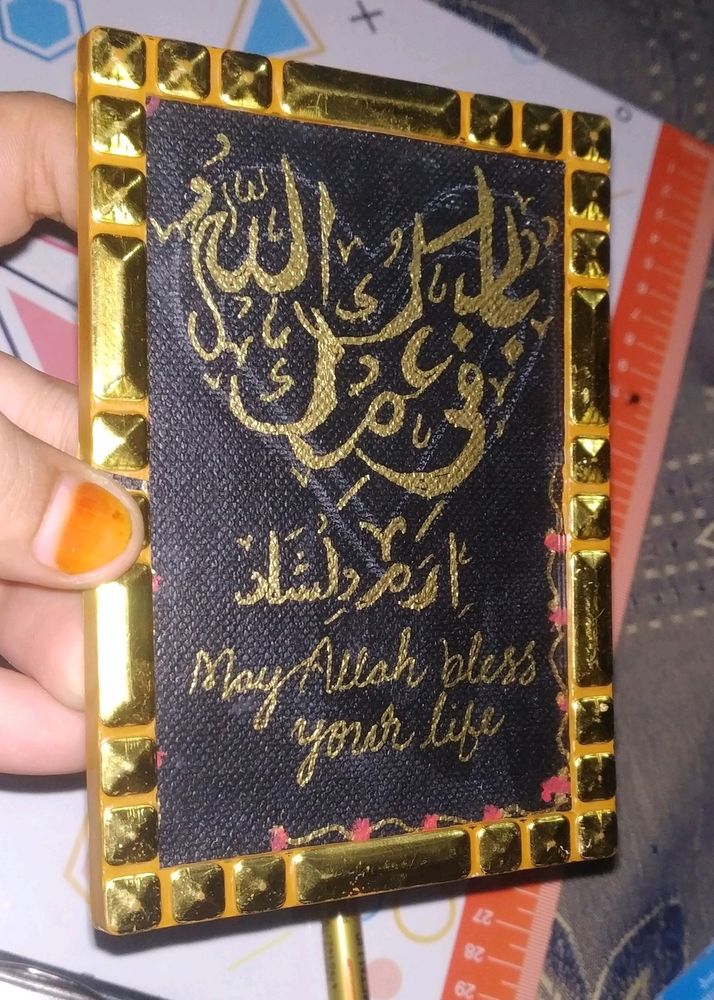 بارك الله
في عمرك
اِرَم دِلشَاد
May Allah bless
your life
27
28
29